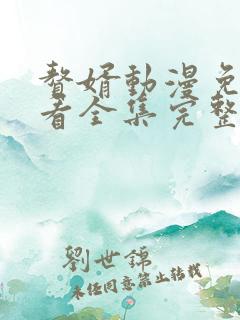 赘婿動漫免
看全集完整
劉世錦
未经同意禁止转载